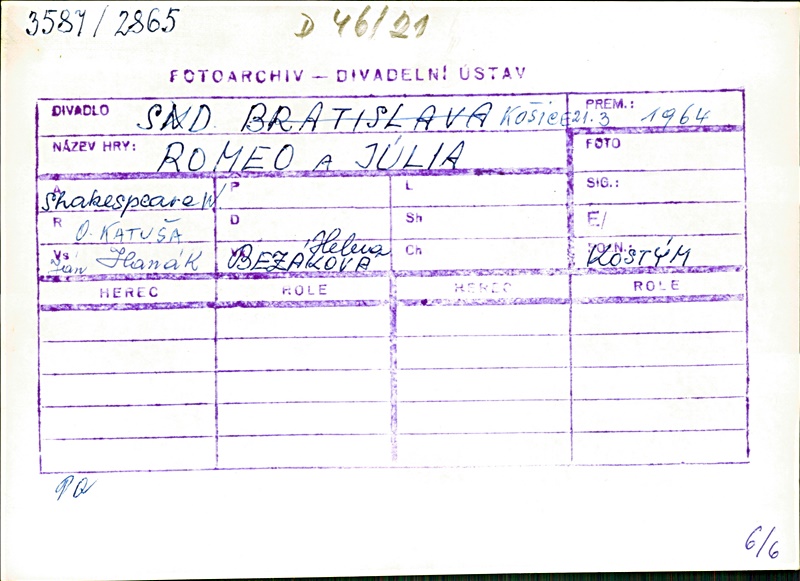 3587/2865
D 46/21
FOTOARCHIV — DIVADELNÍ ÚSTAV
DIVADLO SND. BRATISLAVA Košice 21.3 PREM.: 1964
NÁZEV HRY: ROMEO A JÚLIA FOTO
A Shakespeare W/ P L SIG.:
R O. KATUŠA D Sh E/
Vs Ján Hanák Helena BEZÁKOVÁ Ch KOSTÝM
HEREC ROLE HEREC ROLE
6/6